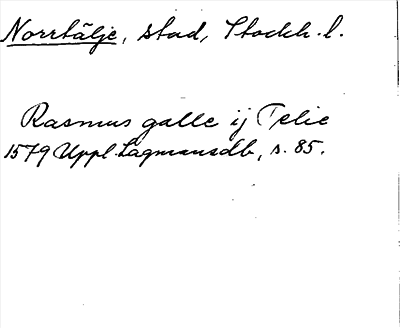 Norrtälje, stad, Stockh. l.
Rasmus galle ij Telie
1579 Uppl. Lagmansdb, s. 85.